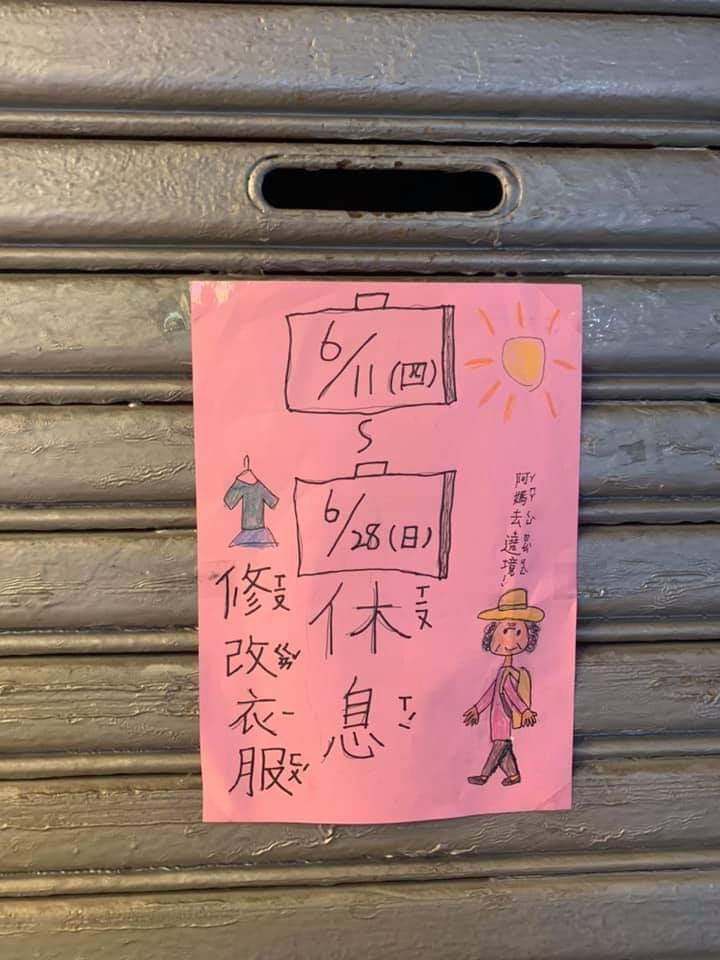 6/11(四)
~
6/28(日)
休ㄒㄧㄡ
息ㄒㄧˊ
修ㄒㄧㄡ
改ㄍㄞˇ
衣ㄧ
服ㄈㄨˊ
阿媽去遶境!